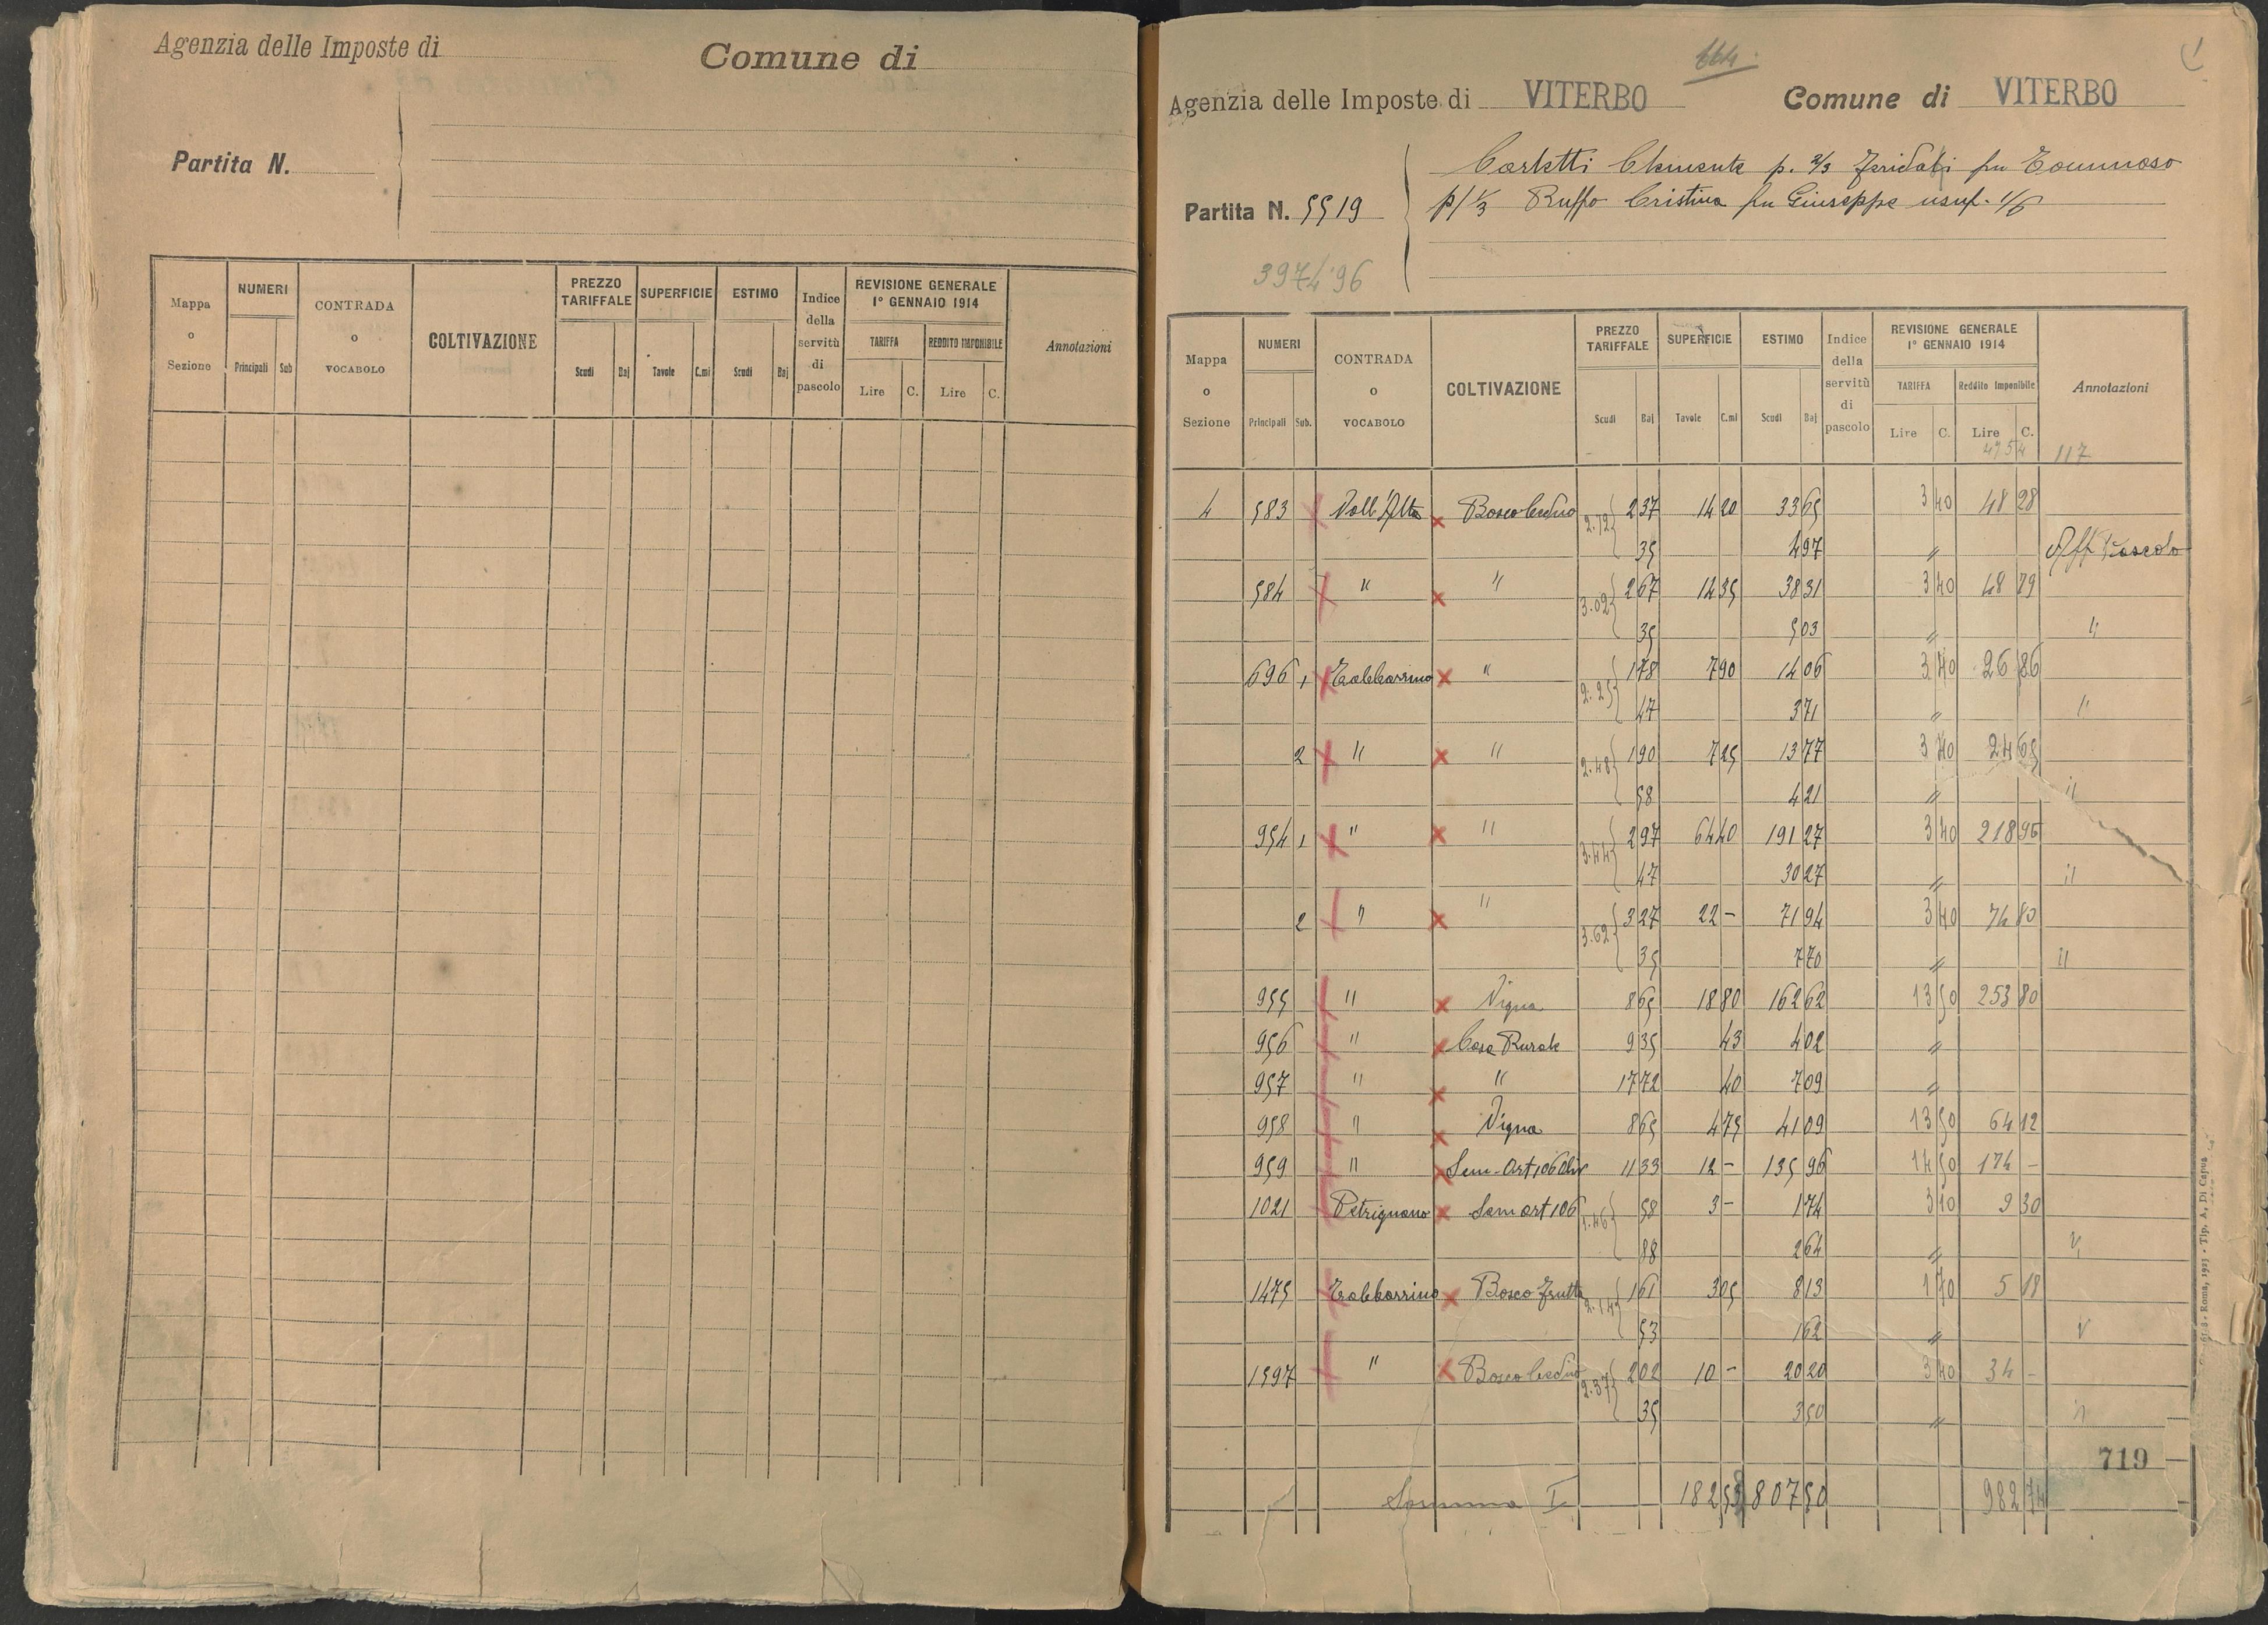 Agenzia delle Imposte di
Comune di
Partita N.
Mappa o Sezione | NUMERI Principali Sub | CONTRADA O VOCABOLO | COLTIVAZIONE | PREZZO TARIFFALE Scudi Baj | SUPERFICIE Tavole C.mi | ESTIMO Scudi Baj | Indice della servitù di pascolo | REVISIONE GENERALE 1° GENNAIO 1914 TARIFFA Lire C. REDDITO IMPONIBILE Lire C. | Annotazioni
Agenzia delle Imposte di VITERBO Comune di VITERBO
Partita N. 5519
Carletti Clemente p. 2/3 fu Tommaso
p/ 1/3 Ruffo Cristina fu Giuseppe usuf. 1/6
397/4 '96
Mappa o Sezione | NUMERI Principali Sub. | CONTRADA O VOCABOLO | COLTIVAZIONE | PREZZO TARIFFALE Scudi Baj | SUPERFICIE Tavole C.mi | ESTIMO Scudi Baj | Indice della servitù di pascolo | REVISIONE GENERALE 1° GENNAIO 1914 TARIFFA Lire C. Reddito Imponibile Lire C. | Annotazioni
4754 117
4 583 Vall'Alta Bosco Ceduo 2.72 2 37 14 20 33 65 3 40 48 28
35 4 97 " Aff Pascolo
584 " " 3.02 2 67 14 35 38 31 3 40 48 79
35 5 03 " "
696 1 " 2.25 1 78 7 90 14 06 3 40 26 86
47 3 71 " "
2 " " 2.48 1 90 7 25 13 77 3 40 24 65
58 4 21 " "
954 1 " " 3.44 2 97 64 40 191 27 3 40 218 96
47 30 27 " "
2 " " 3.62 3 27 22 - 71 94 3 40 74 80
35 7 70 " "
955 " Vigna 8 65 18 80 162 62 13 50 253 80
956 " Casa Rurale 9 35 43 4 02 "
957 " " 17 72 40 7 09 "
958 " Vigna 8 65 4 75 41 09 13 50 64 12
959 " Sem. Art 106 Oliv 11 33 12 - 135 96 14 50 174 -
1021 Petrignano Sem art 106 1.46 58 3 - 1 74 3 10 9 30
88 2 64 " "
1475 Bosco frutta 2.14 1 61 3 05 8 13 1 70 5 18
53 1 62 " "
1597 " Bosco Ceduo 2.37 2 02 10 - 20 20 3 40 34 -
35 3 50 " "
719
Somma I 182 53 807 50 982 74
Roma, 1923 - Tip. A. Di Capua